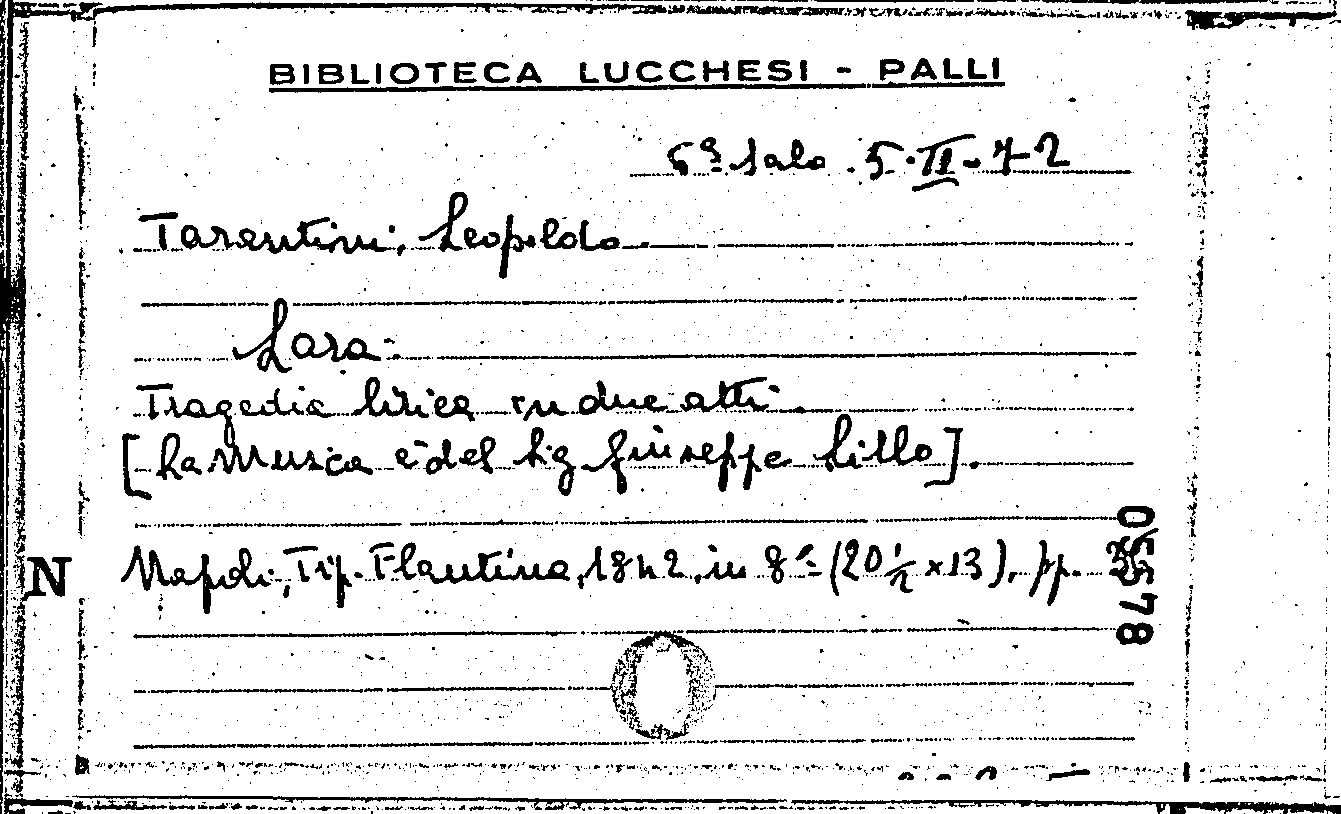 BIBLIOTECA LUCCHESI - PALLI
6ª Sala . 5.II-72
Tarantini, Leopoldo.
Lara.
Tragedia lirica in due atti.
[La Musica è del Sig Giuseppe Lillo].
Napoli, Tip. Flautina, 1842, in 8º (20½ x 13), pp.
N
05578